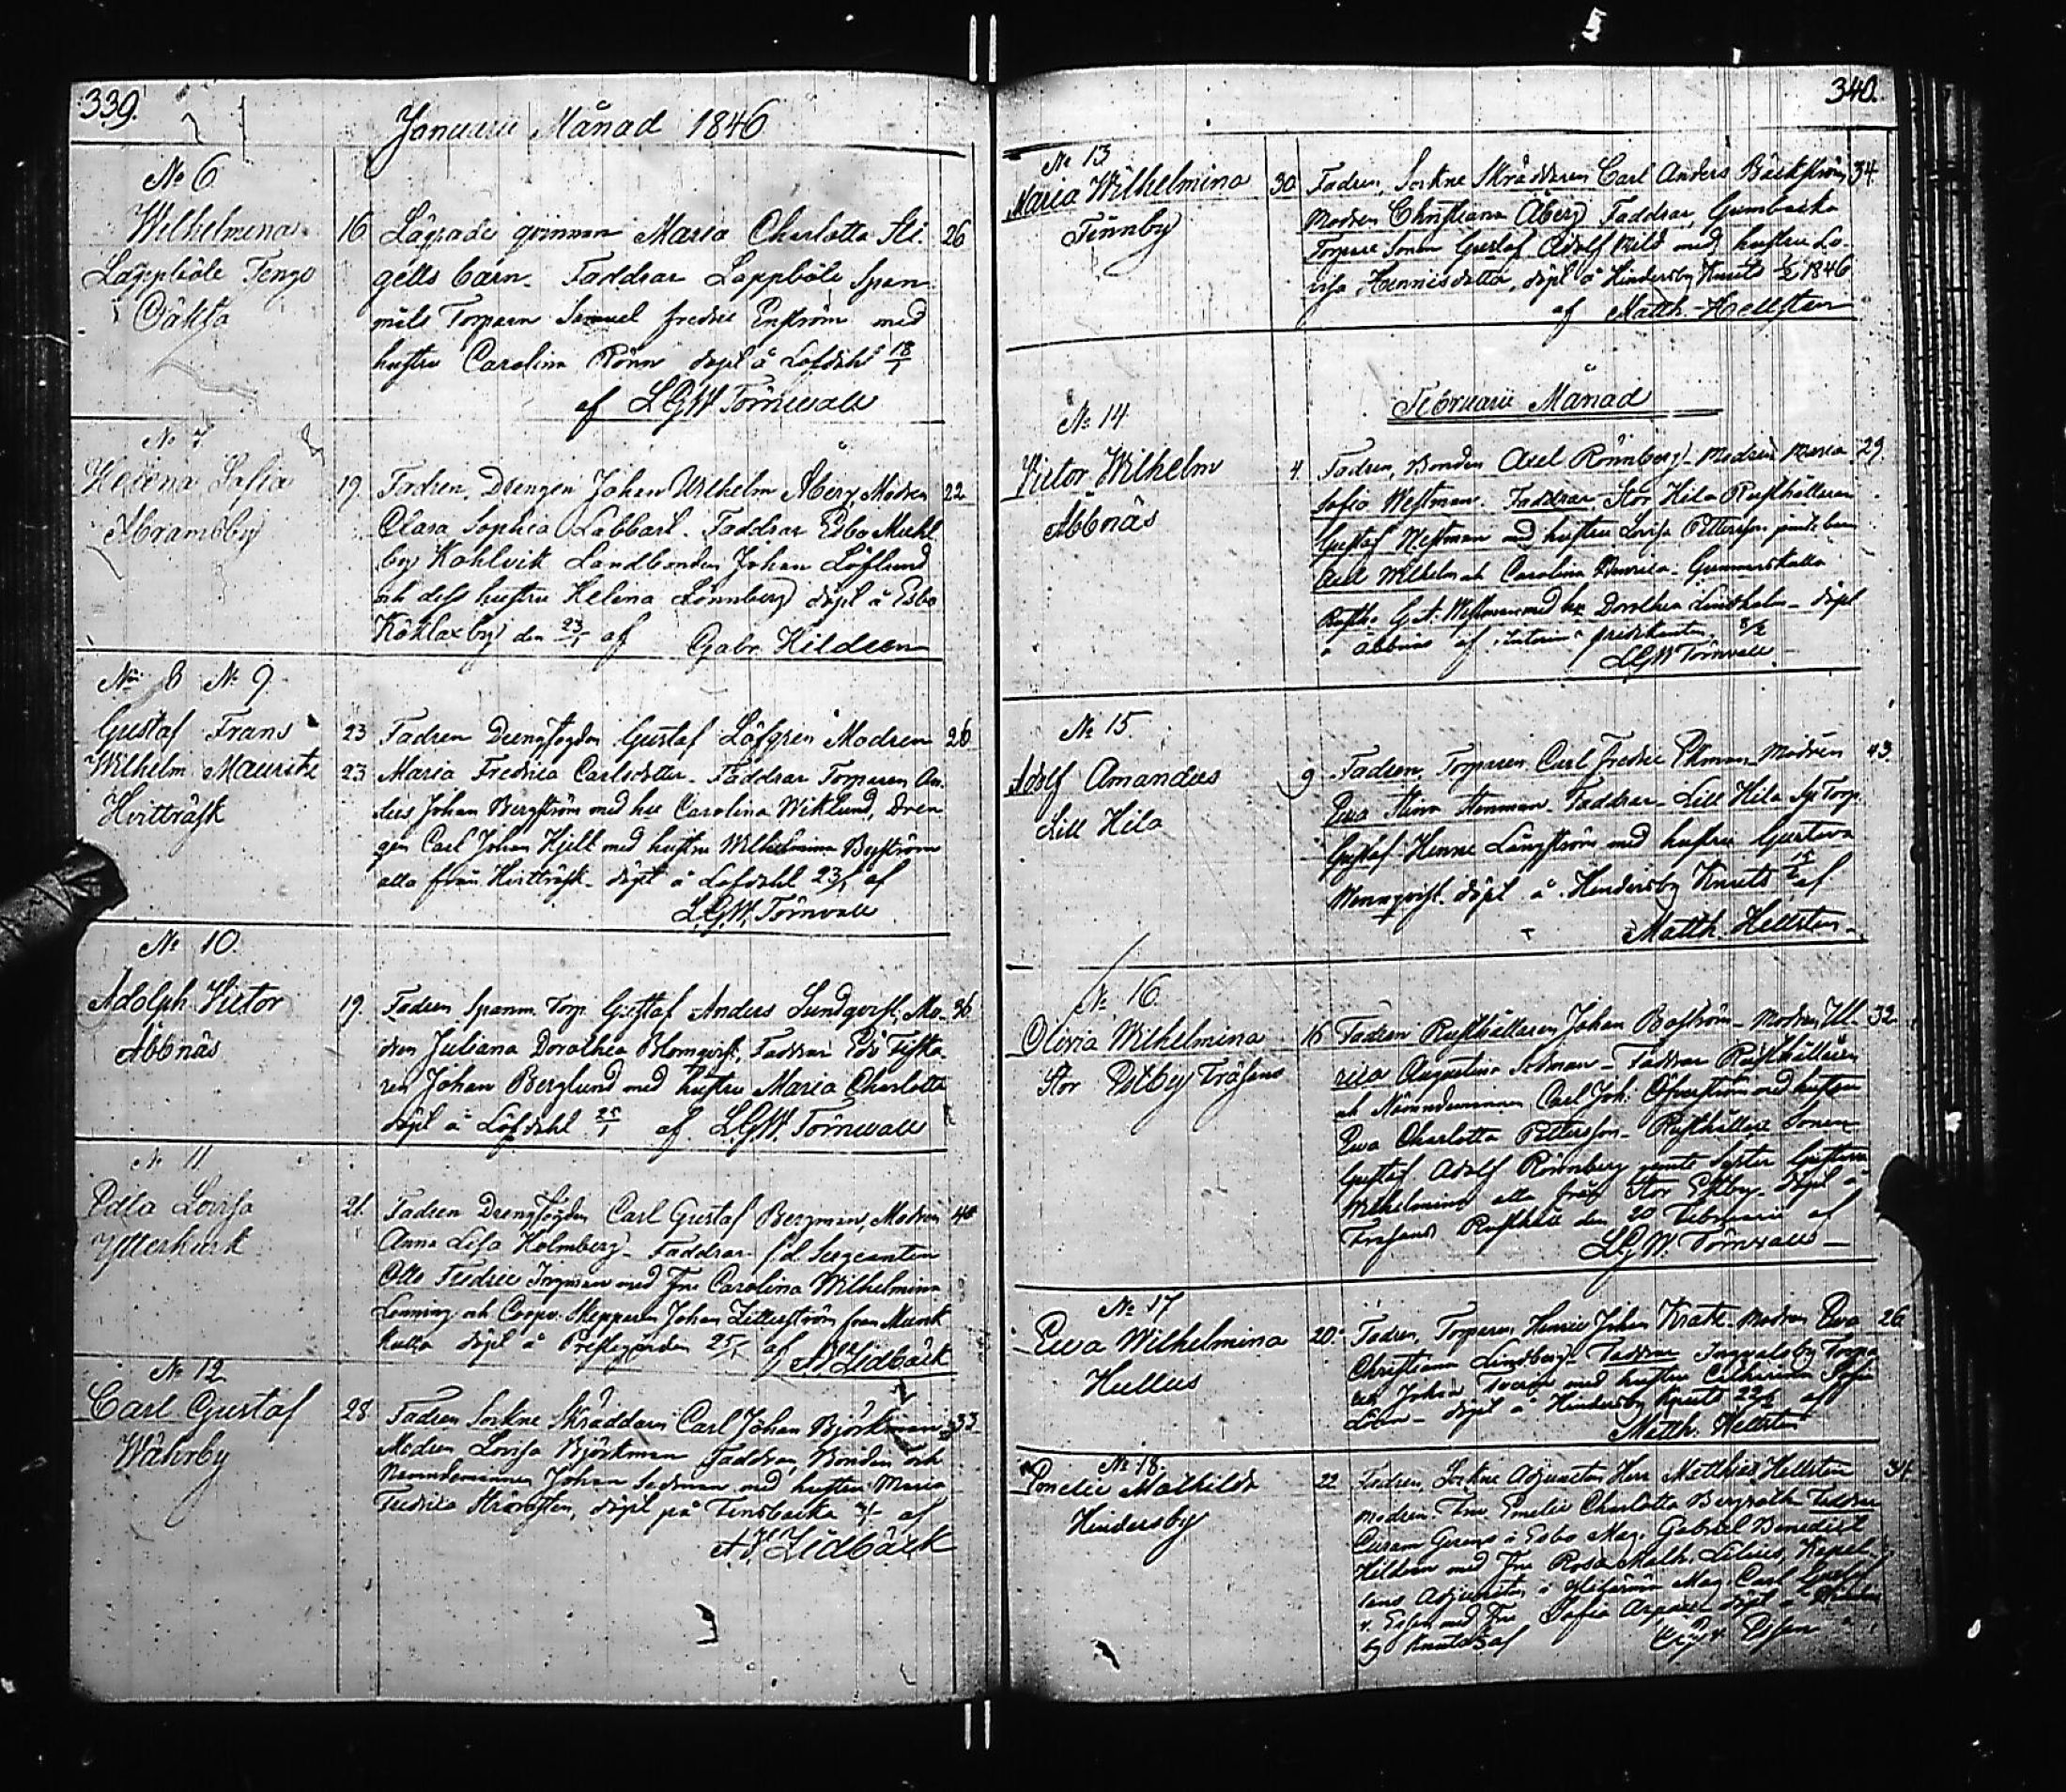 339.
Januarii Månad 1846
No 6
Wilhelmina 16
Lappböle Tengo
Lägrade qvinnan Maria Charlotta 26
gells barn. Faddrar Lappböle Span-
måls Torparn Samuel Fredric Enström med
hustru Carolina Rönn döpt å Löfdahl 18/1
af LGW Törnwall
No 7
Helena Sofia 19
Abramsby
Fadren, Drengen Johan Wilhelm Åberg, Modren 22
Clara Sophia Labbart. Faddrar Esbo
by Kohlvik Landbonden Johan Löflund
och dess hustru Helena Lönnberg döpt å Esbo
Köklaxby den 23/1 af Gabr. Hildeen
No 8 No 9
Gustaf Frans 23
Wilhelm Mauritz 23
Hvitträsk
Fadren Drengfogden Gustaf Löfgren Modren 26
Maria Fredrica Carlsdotter. Faddrar Torparen An-
ders Johan Bergström med hu Carolina Wiklund, Dren
gen Carl Johan Hjelt med hustru Wilhelmina
alla från Hvitträsk. döpt å Löfdahl 23/1 af
L.G.W. Törnvall
No 10.
Adolph Victor 19.
Åbbnäs
Fadren Spanm. Torp. Gustaf Anders Lundqvist, Mo- 36
dren Juliana Dorothea Blomqvist, Faddrar Fiska-
ren Johan Berglund med hustru Maria Charlotta
döpt å Löfdahl 25/1 af L.G.W. Törnwall
No 11
Edla Lovisa 21.
Ytterkurk
Fadren Drengfogden Carl Gustaf Bergman, Modren
Anna Lisa Holmberg. Faddrar f.d. Sergeanten
Otto Fredric Ingman med Fru Carolina Wilhelmina
Lenning och Coopv. Skepparen Johan Zitterström från Munk
kulla döpt å Prestegården 25/1 af A. Lidbäck
No 12
Carl Gustaf 28
Wåhrby
Fadren Sockne Skräddarn Carl Johan Björkman 33
Modren Lovisa Björkman Faddrar, Bonden och
Nämndemannen Johan Sedman med hustru Maria
Fredrica döpt på Finsbacka af
A. Lidbäck
340.
No 13
Maria Wilhelmina 30
Finnby
Fadren, Sockne Skräddaren Carl Anders Bäckström 34
Modren Christiana Åberg Faddrar, Gumbacka
Torpare Sonen Gustaf Adolf Mild med hustru Lo-
visa Hennisdotter, döpt å Hindersby Knuts 1/2 1846
af Matth. Hellsten
Februarii Månad
No 14
Victor Wilhelm 4
Åbbnäs
Fadren, Bonden Axel Rönnberg. Modren Maria 29.
Sofia Westman. Faddrar, Stor Hila Rusthållaren
Gustaf Westman med hustru Lovisa Pettersson
Axel Wilhelm och Carolina Gunnarskulla
Rusth. G.A. Westman med hu Dorothea Lindholm. döpt
å Åbbnäs af 8/2
LGW Törnwall
No 15
Adolf Amandus 9
Lill Hila
Fadren, Torparen Carl Fredric Ekman Modren 43
Ewa Stina Stenman. Faddrar. Lill Hila Torp.
Gustaf Henric Långström med hustru Gustava
Wennqvist. döpt å Hindersby Knuts 15/2 af
Matth. Hellsten
No 16
Olivia Wilhelmina 16
Stor Estby Fräsans
Fadren Rusthållaren Johan Boström. Modren Ul- 32
rica Augustina Sedman. Faddrar Rusthållaren
och Nämndemannen Carl Joh. Öfverström med hustru
Ewa Charlotta Pettersson. Rusthållare Sonen
Gustaf Adolf Rönnberg jemte Syster Gustava
Wilhelmina alla från Stor Estby. döpt å
Fräsans Rusthåll den 20 Februarii af
LGW. Törnwall
No 17
Ewa Wilhelmina 20.
Hullus
Fadren, Torparen, Henric Johan Krath. Modren Ewa 26
Christiana Lindberg. Faddrar Ingvalsby Torpa
ren Johan med hustru Catharina Sofia
döpt å Hindersby Knuts 22/2 af
Matth. Hellsten
No 18.
Emelie Mathilda 22
Hindersby
Fadren, Sockne Adjuncten Herr Matthias Hellsten 31
Modren Fru Emelie Charlotta Bergroth Faddrar
Curam Gerens i Esbo Mag. Gabriel Benedict
Hildeen med Fru Rosa Math. Lilius, Kapel-
lans Adjuncten i Mag. Carl Gustaf
v. Essen med Fru Sofia döpt å Hinders
by Knuts af v. Essen